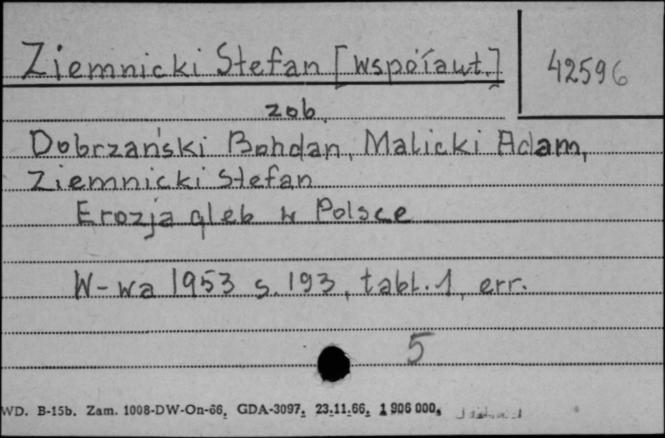 Ziemnicki Stefan [współaut.] 42596
zob.
Dobrzański Bohdan, Malicki Adam,
Ziemnicki Stefan
Erozja gleb w Polsce
W-wa 1953 s. 193, tabl. 1, err.
5
WD. B-15b. Zam. 1008-DW-On-66, GDA-3097, 23.11.66, 1 906 000,